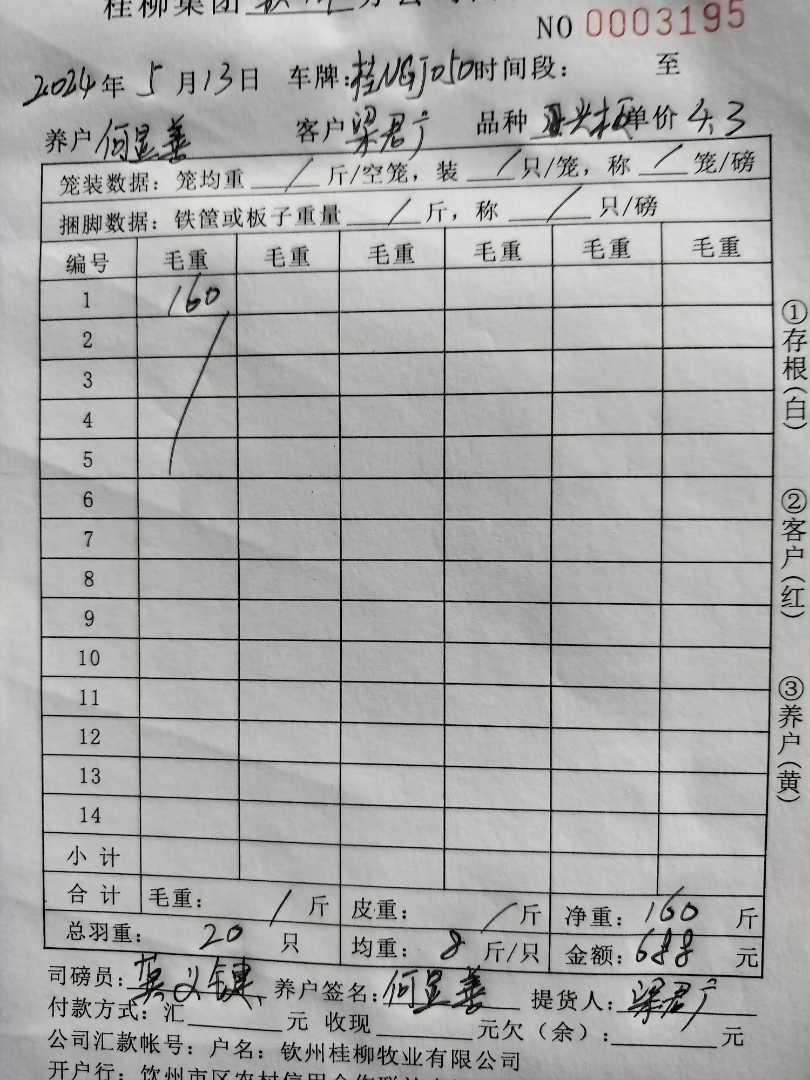 桂柳集团
NO 0003195
2024年 5月13日 车牌:桂NGJ050时间段: 至
养户何显善 客户梁君广 品种 单价 4.3
笼装数据: 笼均重 / 斤/空笼, 装 / 只/笼, 称 / 笼/磅
捆脚数据: 铁筐或板子重量 / 斤, 称 / 只/磅
编号 毛重 毛重 毛重 毛重 毛重 毛重
1 160
2
3
4
5
6
7
8
9
10
11
12
13
14
小计
合计 毛重: / 斤 皮重: / 斤 净重: 160 斤
总羽重: 20 只 均重: 8 斤/只 金额: 688 元
司磅员: 养户签名:何显善 提货人:梁君广
付款方式: 汇 元 收现 元欠(余): 元
公司汇款帐号: 户名: 钦州桂柳牧业有限公司
开户行: 钦州市区农村信用合作联社
①存根(白)
②客户(红)
③养户(黄)